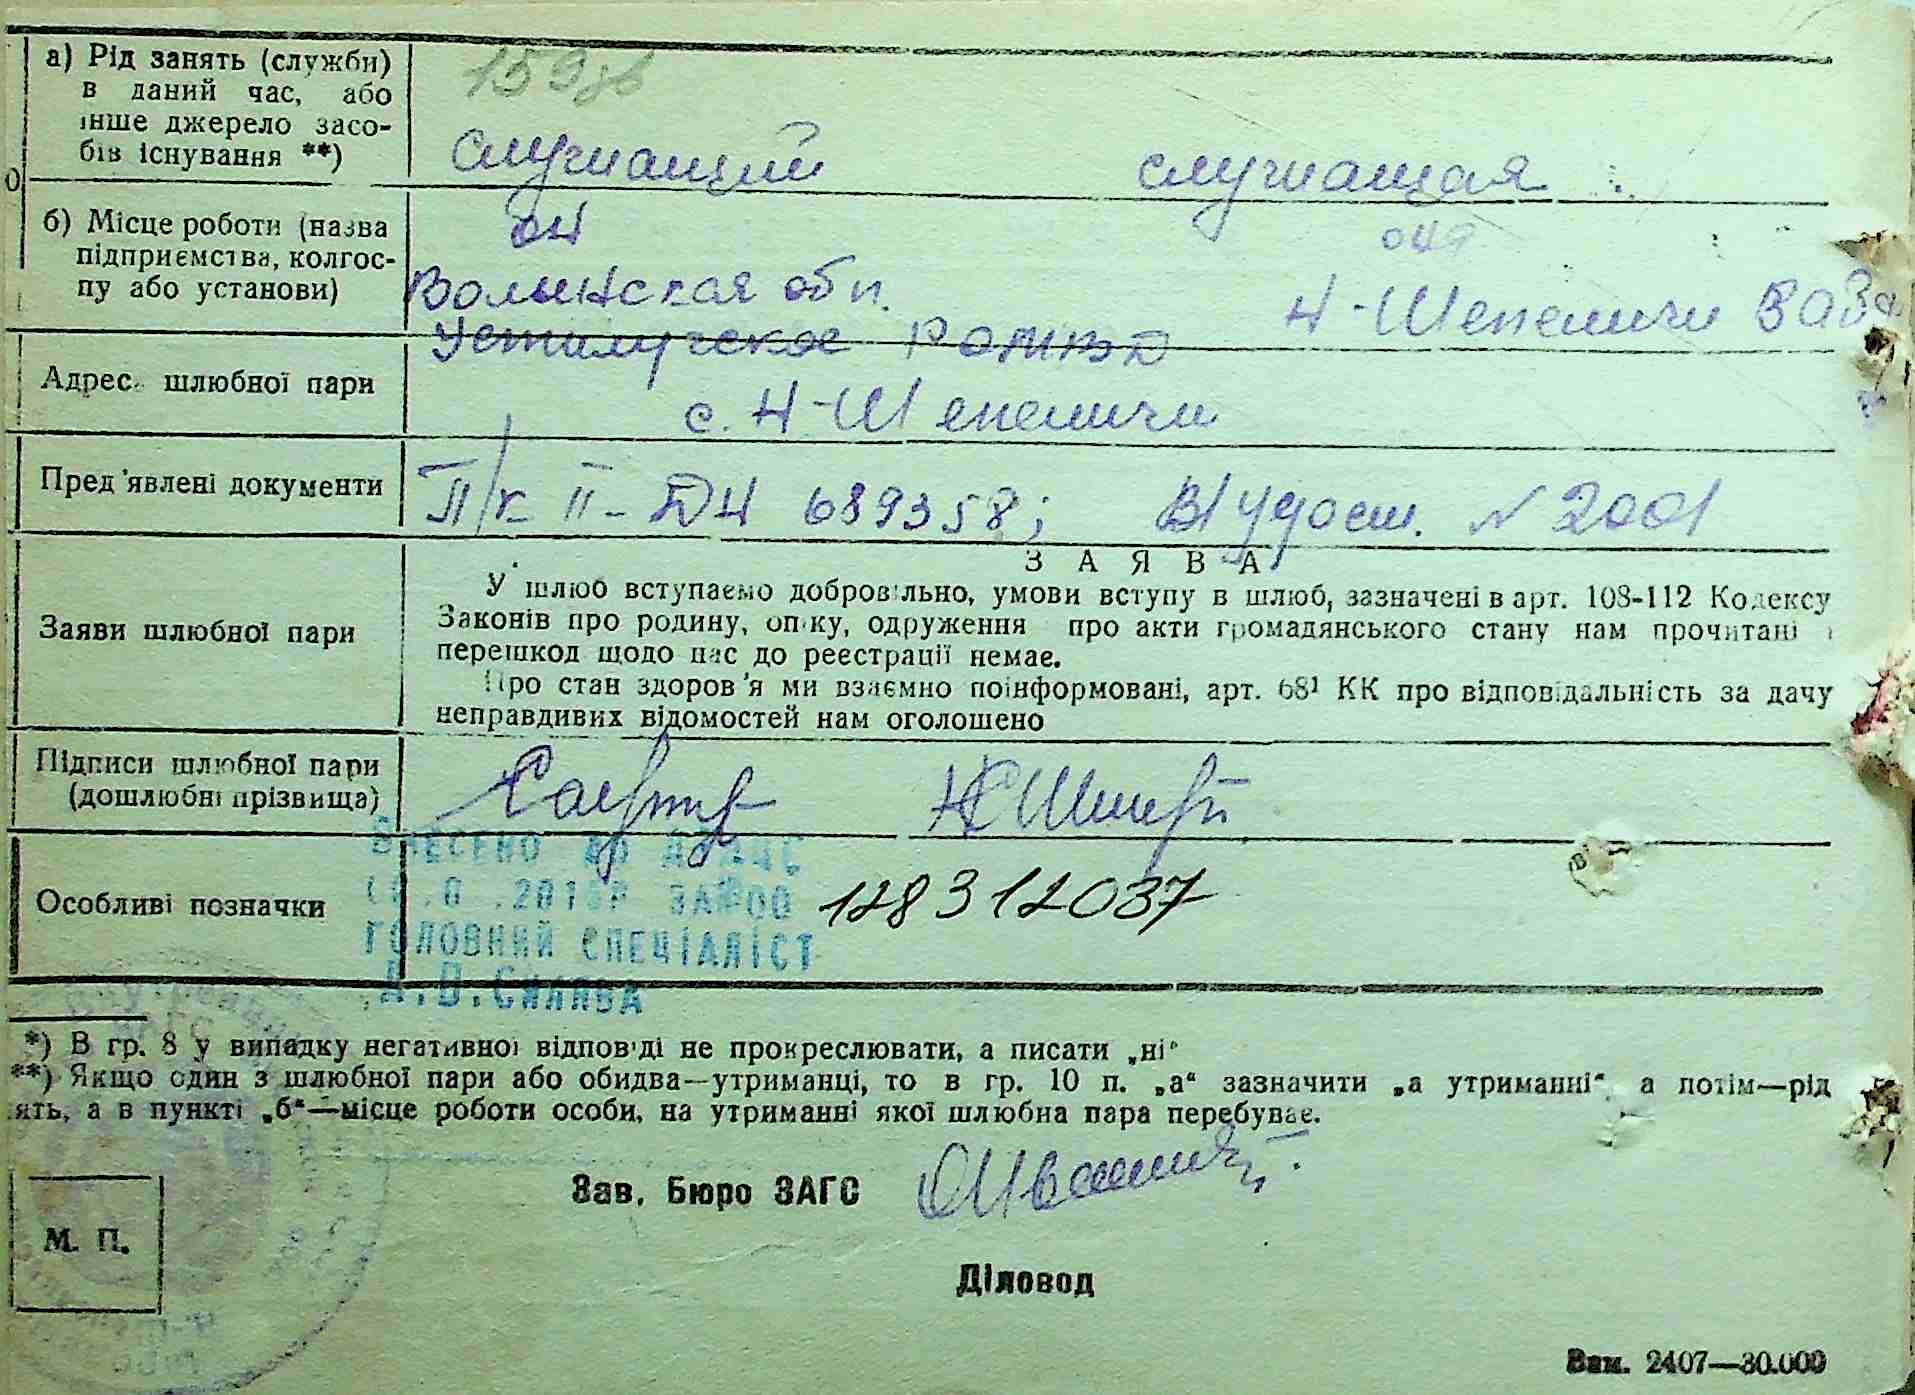 а) Рід занять (служби)
в даний час, або
інше джерело засо-
бів існування **)
159
служащий служащая
б) Місце роботи (назва
підприємства, колгос-
пу або установи)
он она
Волынская обл.
Н-Шепеличи
Устилугское РОМВД
Адрес шлюбної пари
с. Н-Шепеличи
Пред'явлені документи
П/к II-ДН 689358; В/удост. N 2001
Заяви шлюбної пари
ЗАЯВА
У шлюб вступаємо добровільно, умови вступу в шлюб, зазначені в арт. 108-112 Кодексу
Законів про родину, опіку, одруження про акти громадянського стану нам прочитані і
перешкод щодо нас до реєстрації немає.
Про стан здоров'я ми взаємно поінформовані, арт. 68¹ КК про відповідальність за дачу
неправдивих відомостей нам оголошено
Підписи шлюбної пари
(дошлюбні прізвища)
Особливі позначки
128312037
ВНЕСЕНО ДО ДРАЦС
ГОЛОВНИЙ СПЕЦІАЛІСТ
*) В гр. 8 у випадку негативної відповіді не прокреслювати, а писати „ні“
**) Якщо один з шлюбної пари або обидва—утриманці, то в гр. 10 п. „а“ зазначити „а утриманні“, а потім—рід
ять, а в пункті „б“—місце роботи особи, на утриманні якої шлюбна пара перебуває.
Зав. Бюро ЗАГС
М. П.
Діловод
Зам. 2407—30.000